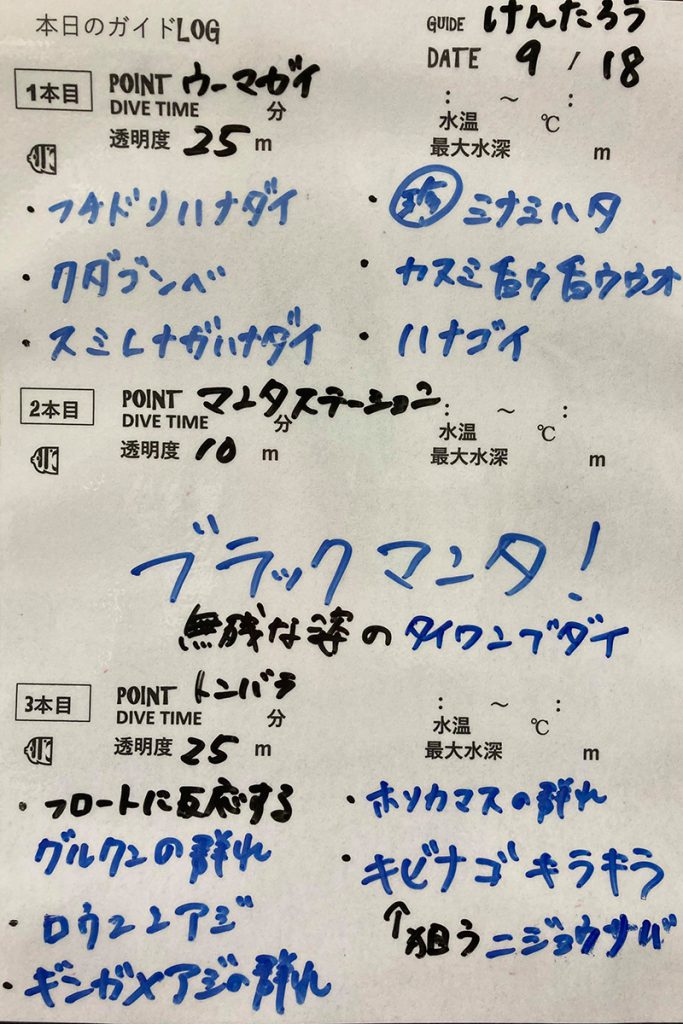 本日のガイドLOG
GUIDE けんたろう
DATE 9 / 18
1本目
POINT ウーマガイ
DIVE TIME 分
: ～ :
水温 ℃
透明度 25 m
最大水深 m
・フチドリハナダイ
・クダゴンベ
・スミレナガハナダイ
・珍 ミナミハタ
・カスミチョウチョウウオ
・ハナゴイ
2本目
POINT マンタステーション
DIVE TIME 分
: ～ :
水温 ℃
透明度 10 m
最大水深 m
ブラックマンタ!
無残な姿のタイワンブダイ
3本目
POINT トンバラ
DIVE TIME 分
: ～ :
水温 ℃
透明度 25 m
最大水深 m
・フロートに反応する
グルクンの群れ
・ロウニンアジ
・ギンガメアジの群れ
・ホソカマスの群れ
・キビナゴキラキラ
↑狙うニジョウサバ